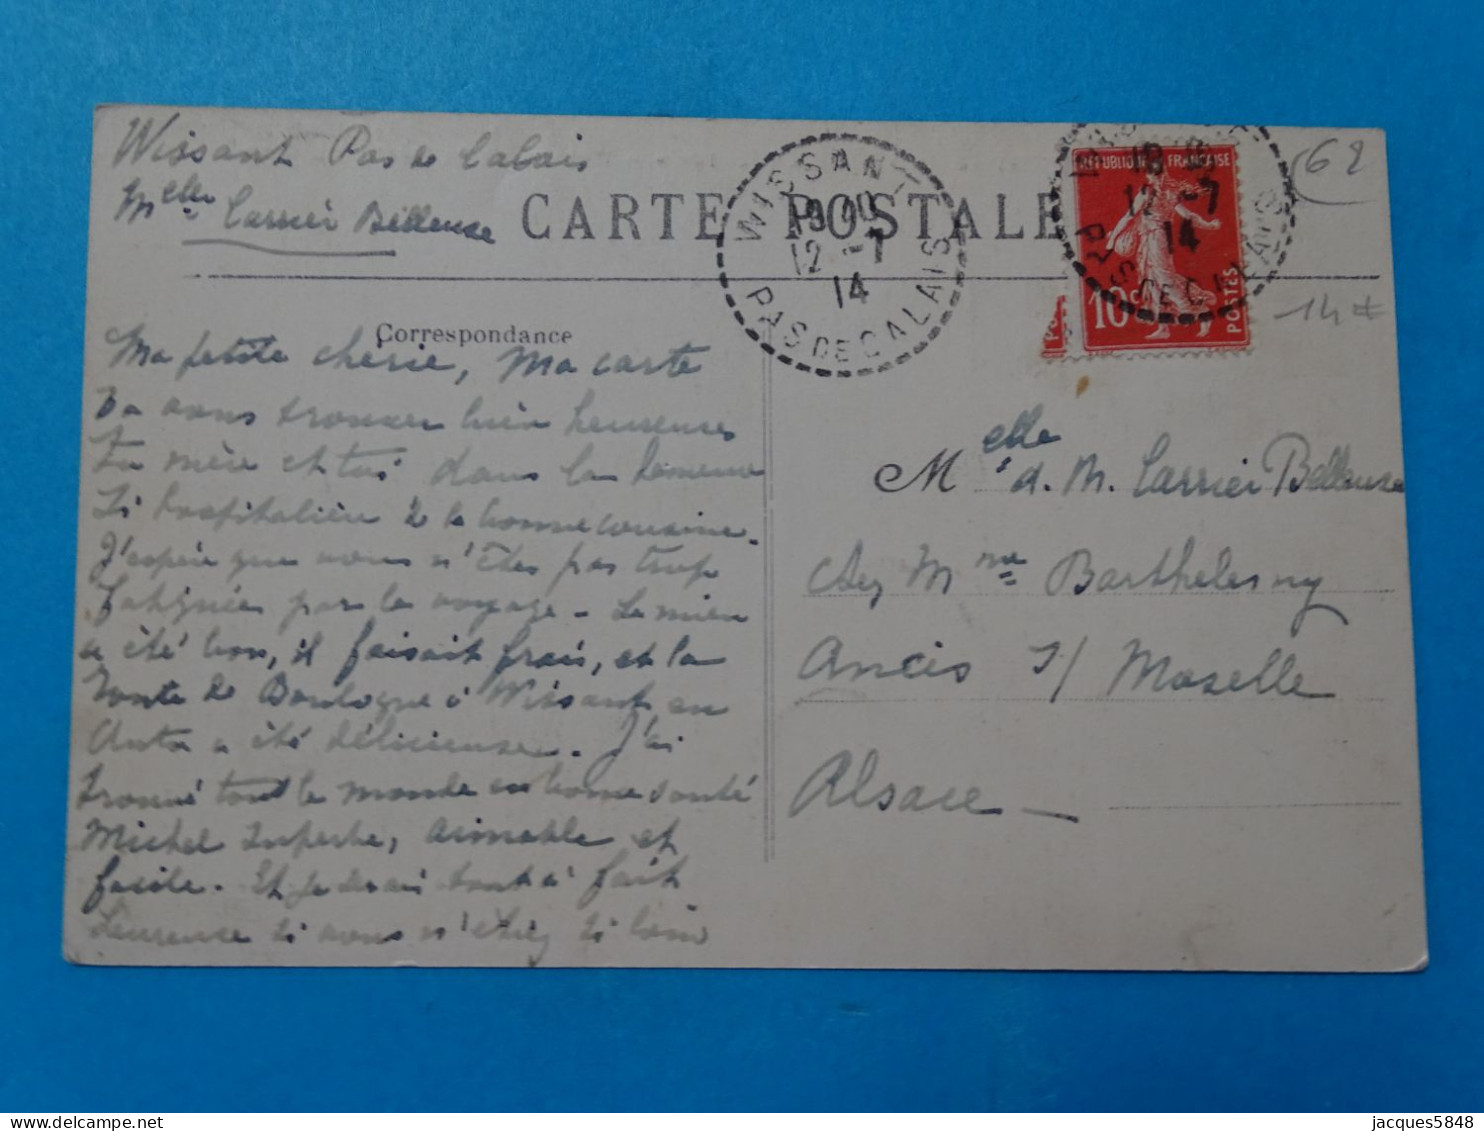 Wissant Pas de Calais
Melle Carrier Belleuse
CARTE POSTALE
WISSANT
12 -7
14
PAS DE CALAIS
RÉPUBLIQUE FRANÇAISE
18
12 -7
14
PAS DE CALAIS
10c
POSTES
62
14
Correspondance
Ma petite cherie, Ma carte
va vous trouver bien heureuses
ta mère et toi dans la demeure
si hospitalière de la bonne cousine.
J'espère que vous n'êtes pas trop
fatiguées par le voyage - Le mien
a été bon, il faisait frais, et la
route de Boulogne à Wissant en
Auto a été délicieuse. J'ai
trouvé tout le monde en bonne santé
Michel superbe, aimable et
facile. Et je serai tout à fait
heureuse si vous n'étiez si loin
Melle d. M. Carrier Belleuse
chez Mme Barthelemy
Ancis s/ Moselle
Alsace -
jacques5848